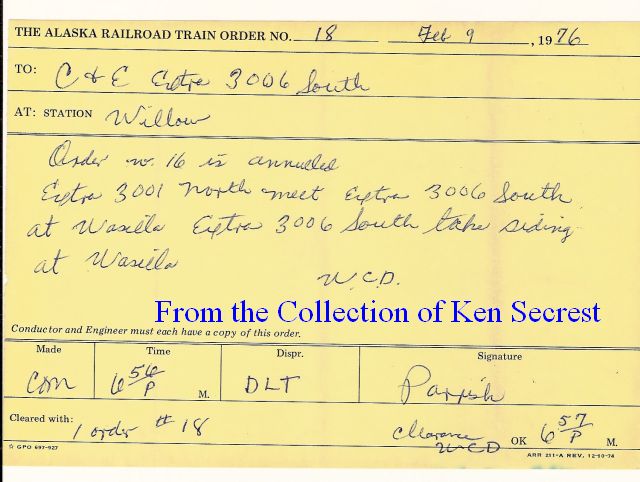 THE ALASKA RAILROAD TRAIN ORDER NO. 18 Feb 9, 1976
TO: C & E Extra 3006 South
AT: STATION Willow
Order no. 16 is annulled
Extra 3001 North meet Extra 3006 South
at Wasilla Extra 3006 South take siding
at Wasilla
W.C.D.
From the Collection of Ken Secrest
Conductor and Engineer must each have a copy of this order.
Made Time Dispr. Signature
Com 6 56/P M. DLT Parrish
Cleared with: 1 order # 18 Clearance WCD OK 6 57/P M.
☆ GPO 697-927 ARR 211-A REV. 12-10-74